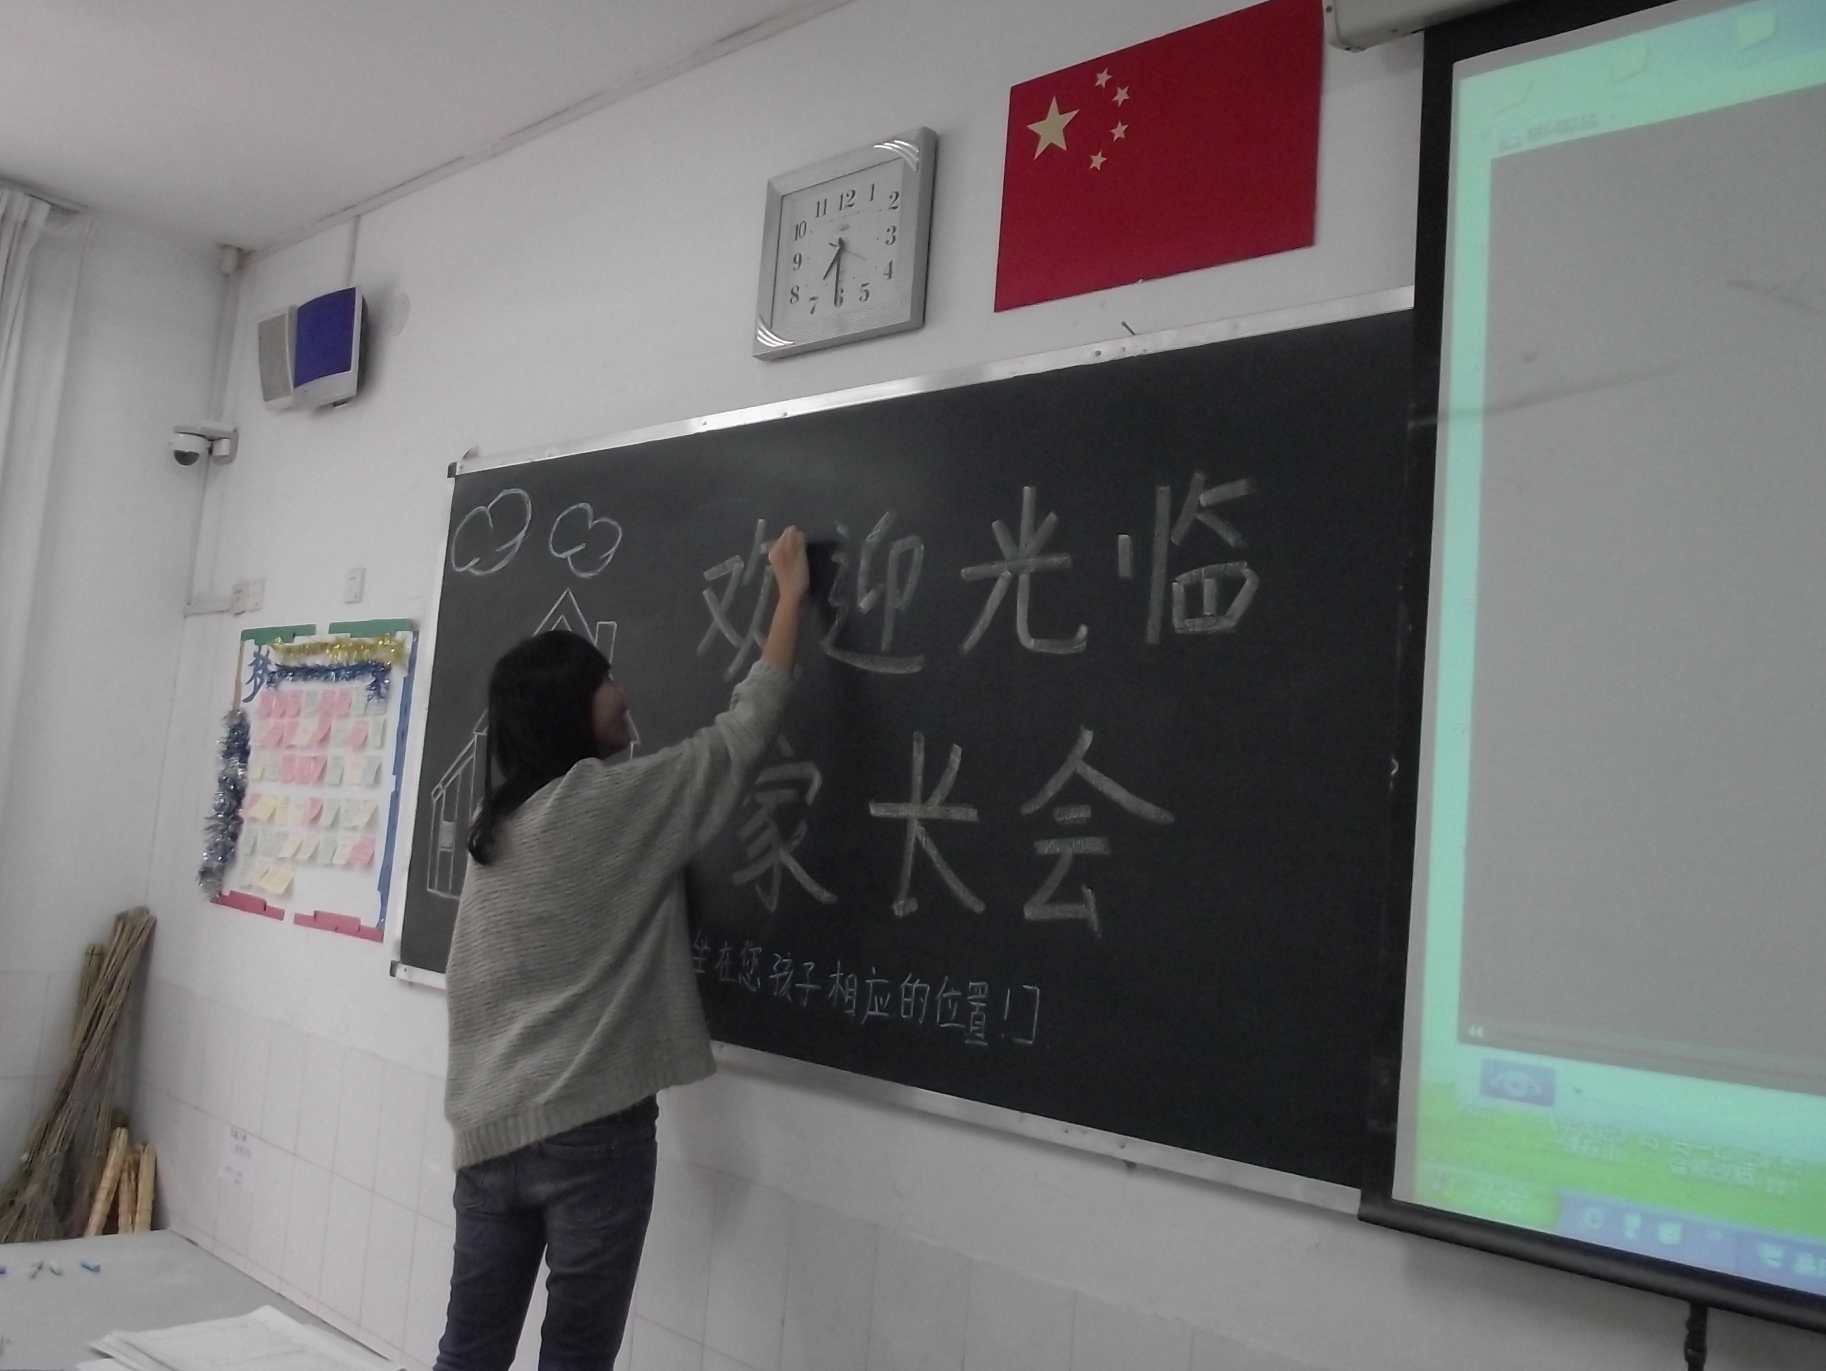 11 12 1
10 2
9 3
8 4
7 6 5
梦
欢迎光临
家长会
坐在您孩子相应的位置！]